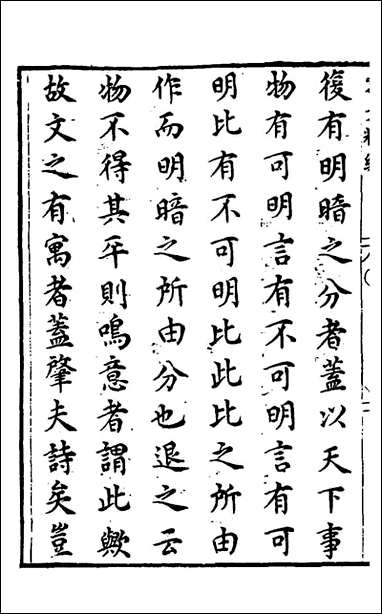 復有明暗之分者蓋以天下事
物有可明言有不可明言有可
明比有不可明比此比之所由
作而明暗之所由分也退之云
物不得其平則鳴意者謂此歟
故文之有寓者蓋肇夫詩矣豈